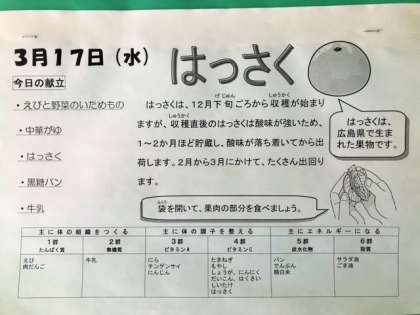 3月17日（水）
はっさく
今日の献立
・えびと野菜のいためもの
・中華がゆ
・はっさく
・黒糖パン
・牛乳
はっさくは、12月下旬ごろから収穫が始まり
ますが、収穫直後のはっさくは酸味が強いため、
1～2か月ほど貯蔵し、酸味が落ち着いてから出
荷します。2月から3月にかけて、たくさん出回り
ます。
はっさくは、
広島県で生ま
れた果物です。
袋を開いて、果肉の部分を食べましょう。
主に体の組織をつくる
主に体の調子を整える
主にエネルギーになる
1群 たんぱく質
2群 無機質
3群 ビタミンA
4群 ビタミンC
5群 炭水化物
6群 脂質
えび
肉だんご
牛乳
にら
チンゲンサイ
にんじん
たまねぎ
もやし
しょうが、にんにく
だいこん、はくさい
しいたけ
はっさく
パン
でんぷん
精白米
サラダ油
ごま油